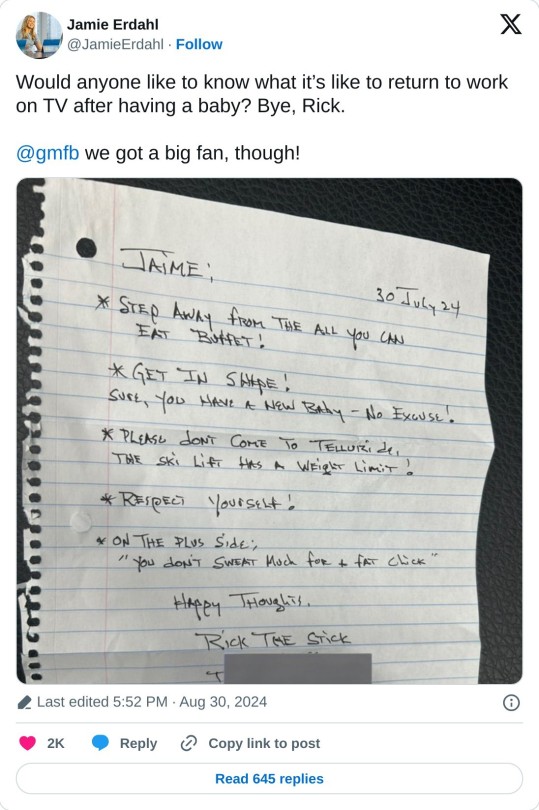 Jamie Erdahl
@JamieErdahl · Follow
Would anyone like to know what it’s like to return to work
on TV after having a baby? Bye, Rick.
@gmfb we got a big fan, though!
JAIME;
30 July 24
* STEP AWAY from THE ALL YOU CAN
EAT BUFFET!
* GET IN SHAPE!
SURE, YOU HAVE A NEW BABY – NO EXCUSE!
* PLEASE DONT COME TO TELLURIDE,
THE SKI LIFT HAS A WEIGHT LIMIT!
* RESPECT YOURSELF!
* ON THE PLUS SIDE;
"YOU DON'T SWEAT MUCH FOR A FAT CHICK"
HAPPY THOUGHTS.
RICK THE STICK
Last edited 5:52 PM · Aug 30, 2024
2K Reply Copy link to post
Read 645 replies